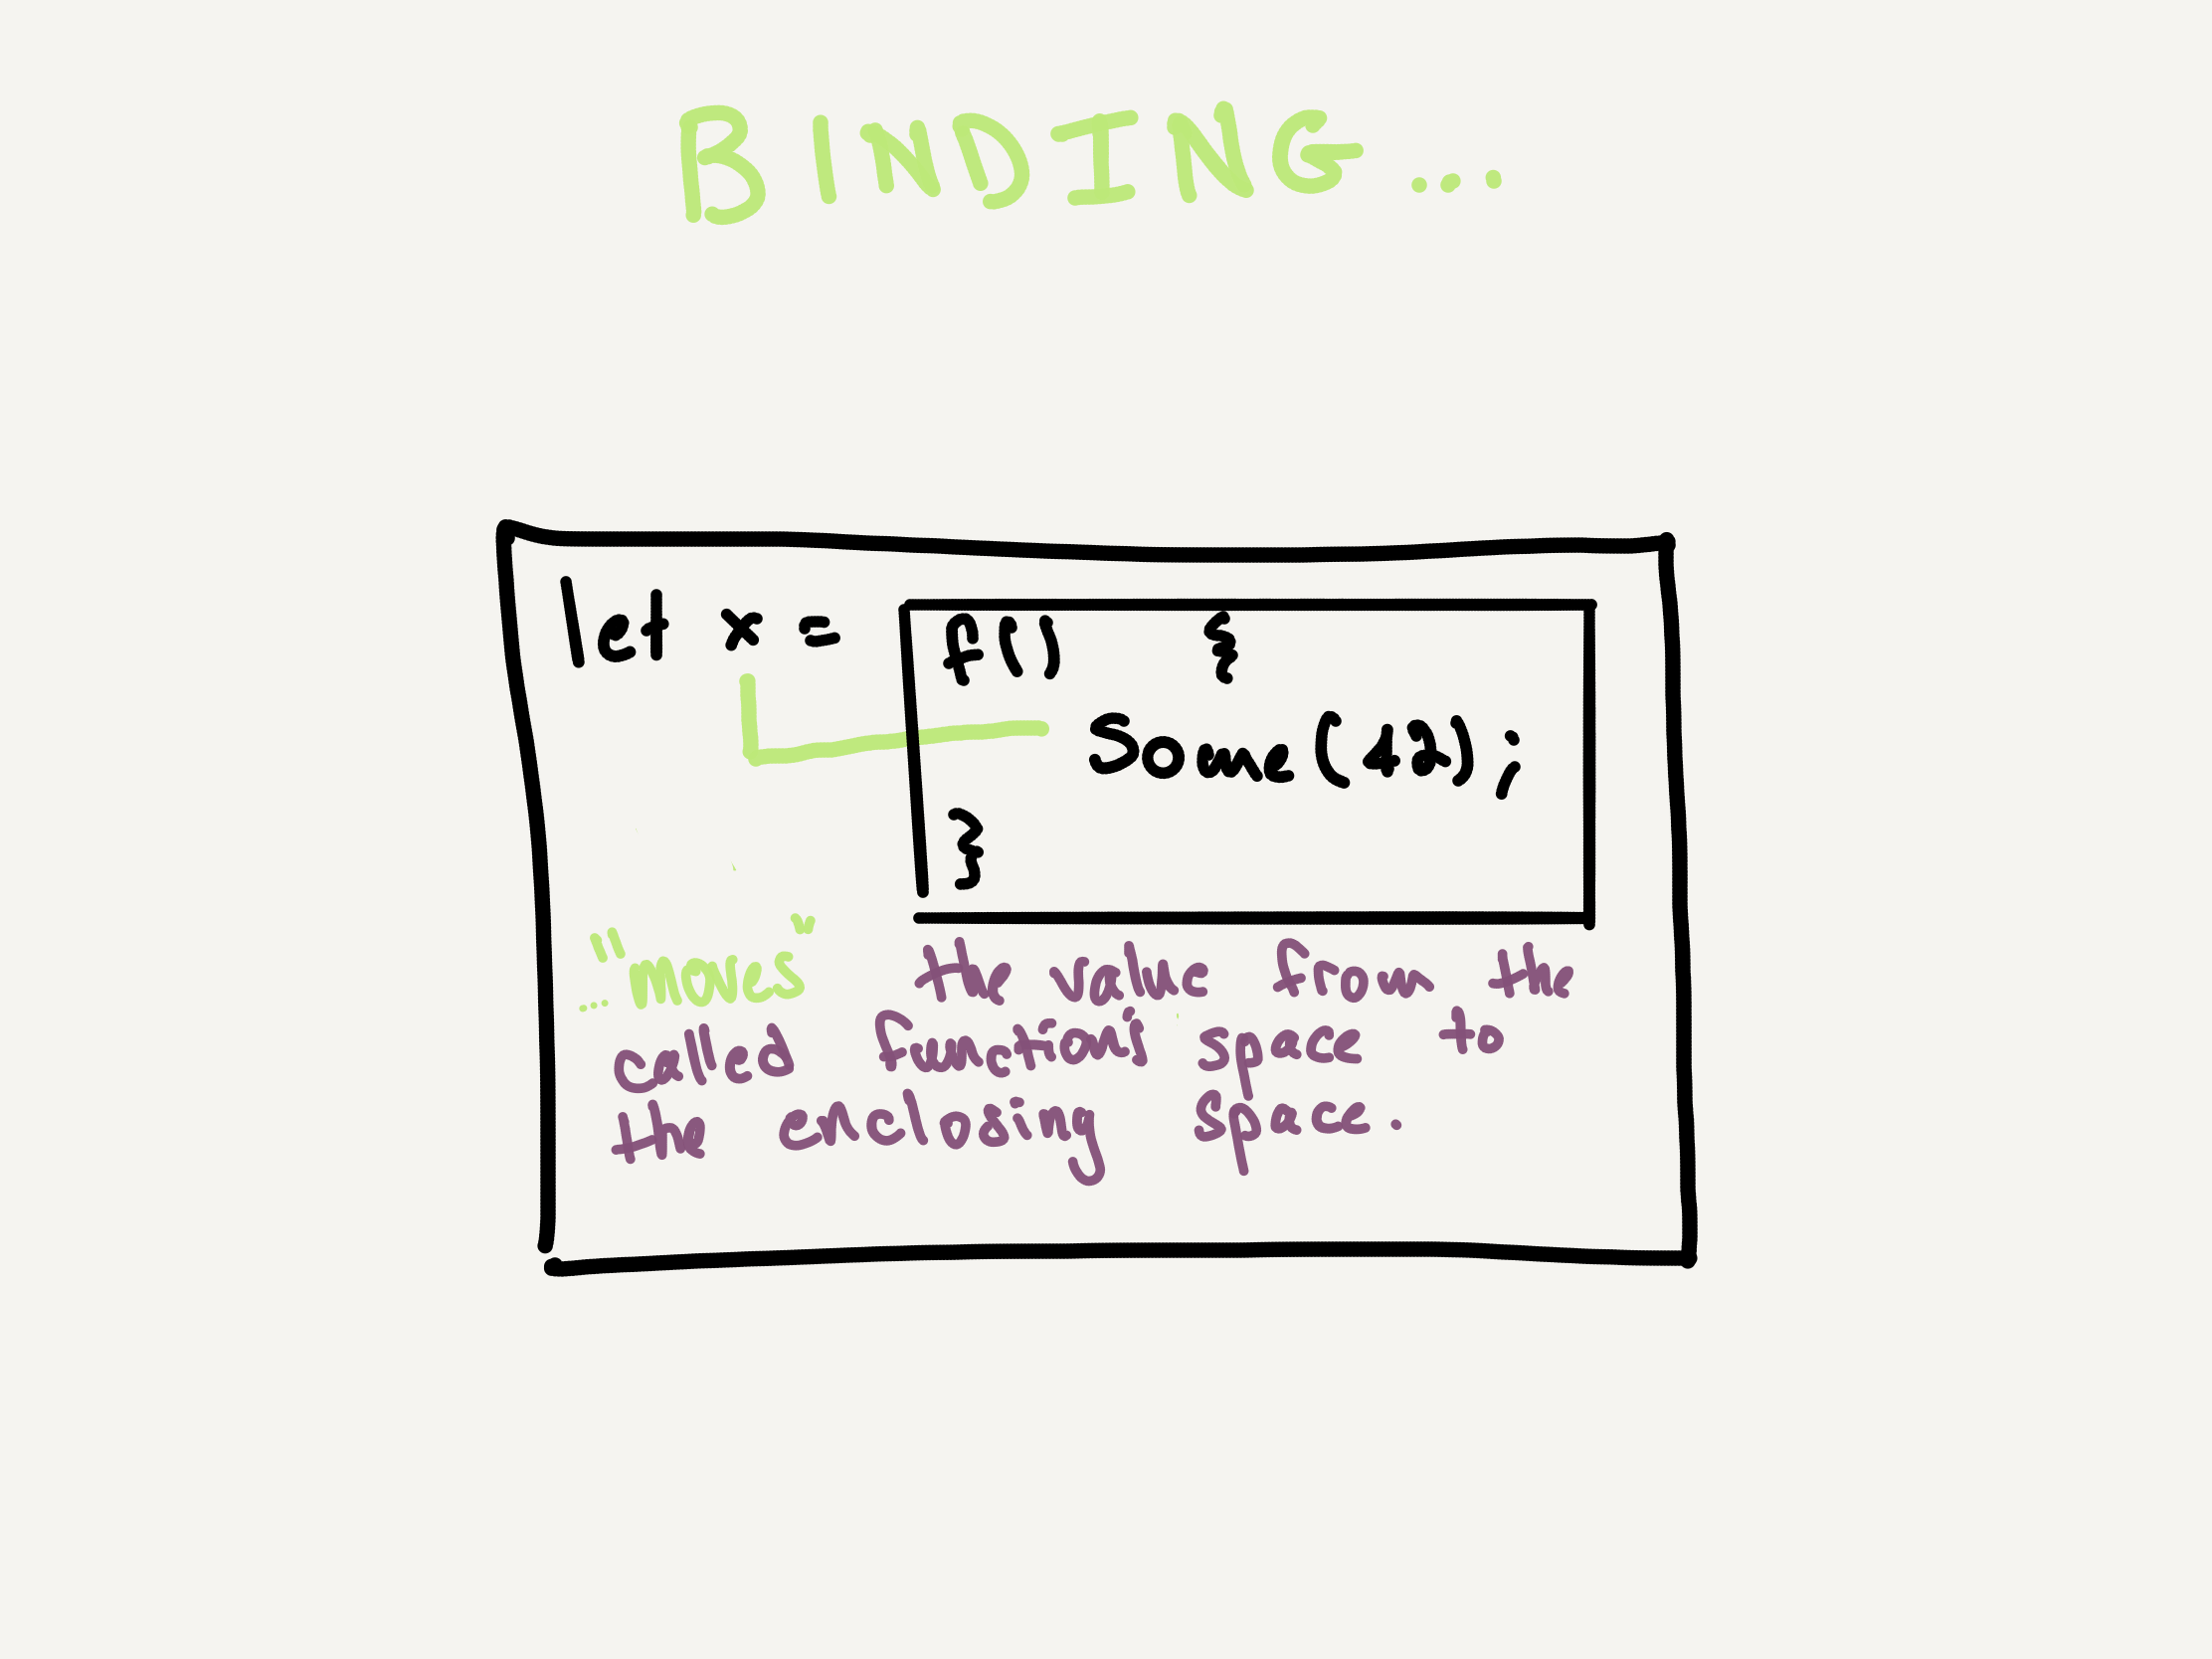 BINDING...
let x = f() {
Some(42);
}
..."moves" the value from the
called function's space to
the enclosing space.